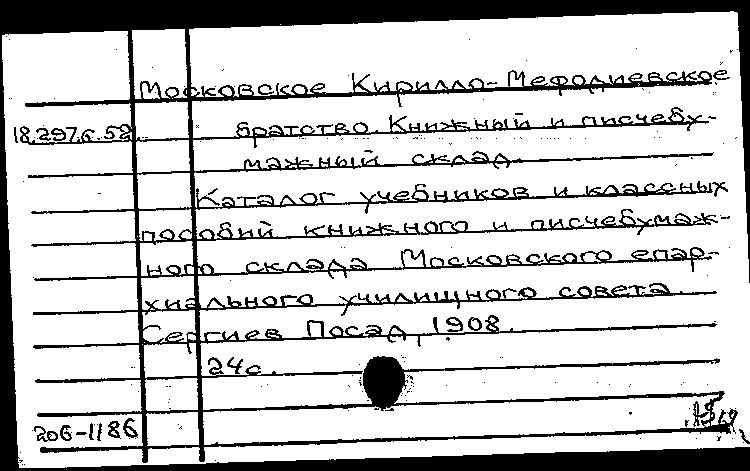 Московское Кирилло-Мефодиевское
18.297.6.52 братство. Книжный и писчебу-
мажный склад.
Каталог учебников и классных
пособий книжного и писчебумаж-
ного склада Московского епар-
хиального училищного совета.
Сергиев Посад, 1908.
24с.
206-1186